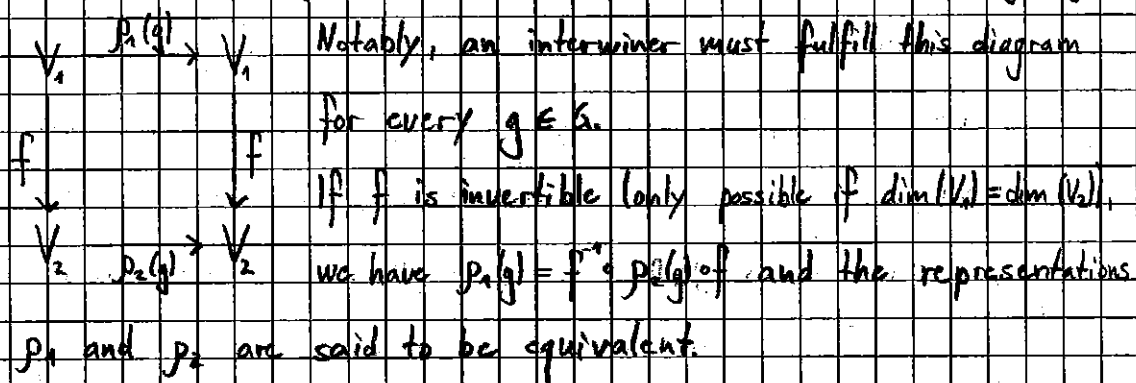 V₁ ρ₁(g) V₁ Notably, an interwiner must fulfill this diagram
for every g ∈ G.
f f
If f is invertible (only possible if dim(V₁)=dim(V₂)),
V₂ ρ₂(g) V₂ we have ρ₁(g) = f⁻¹∘ ρ₂(g)∘f and the representations
ρ₁ and ρ₂ are said to be equivalent.